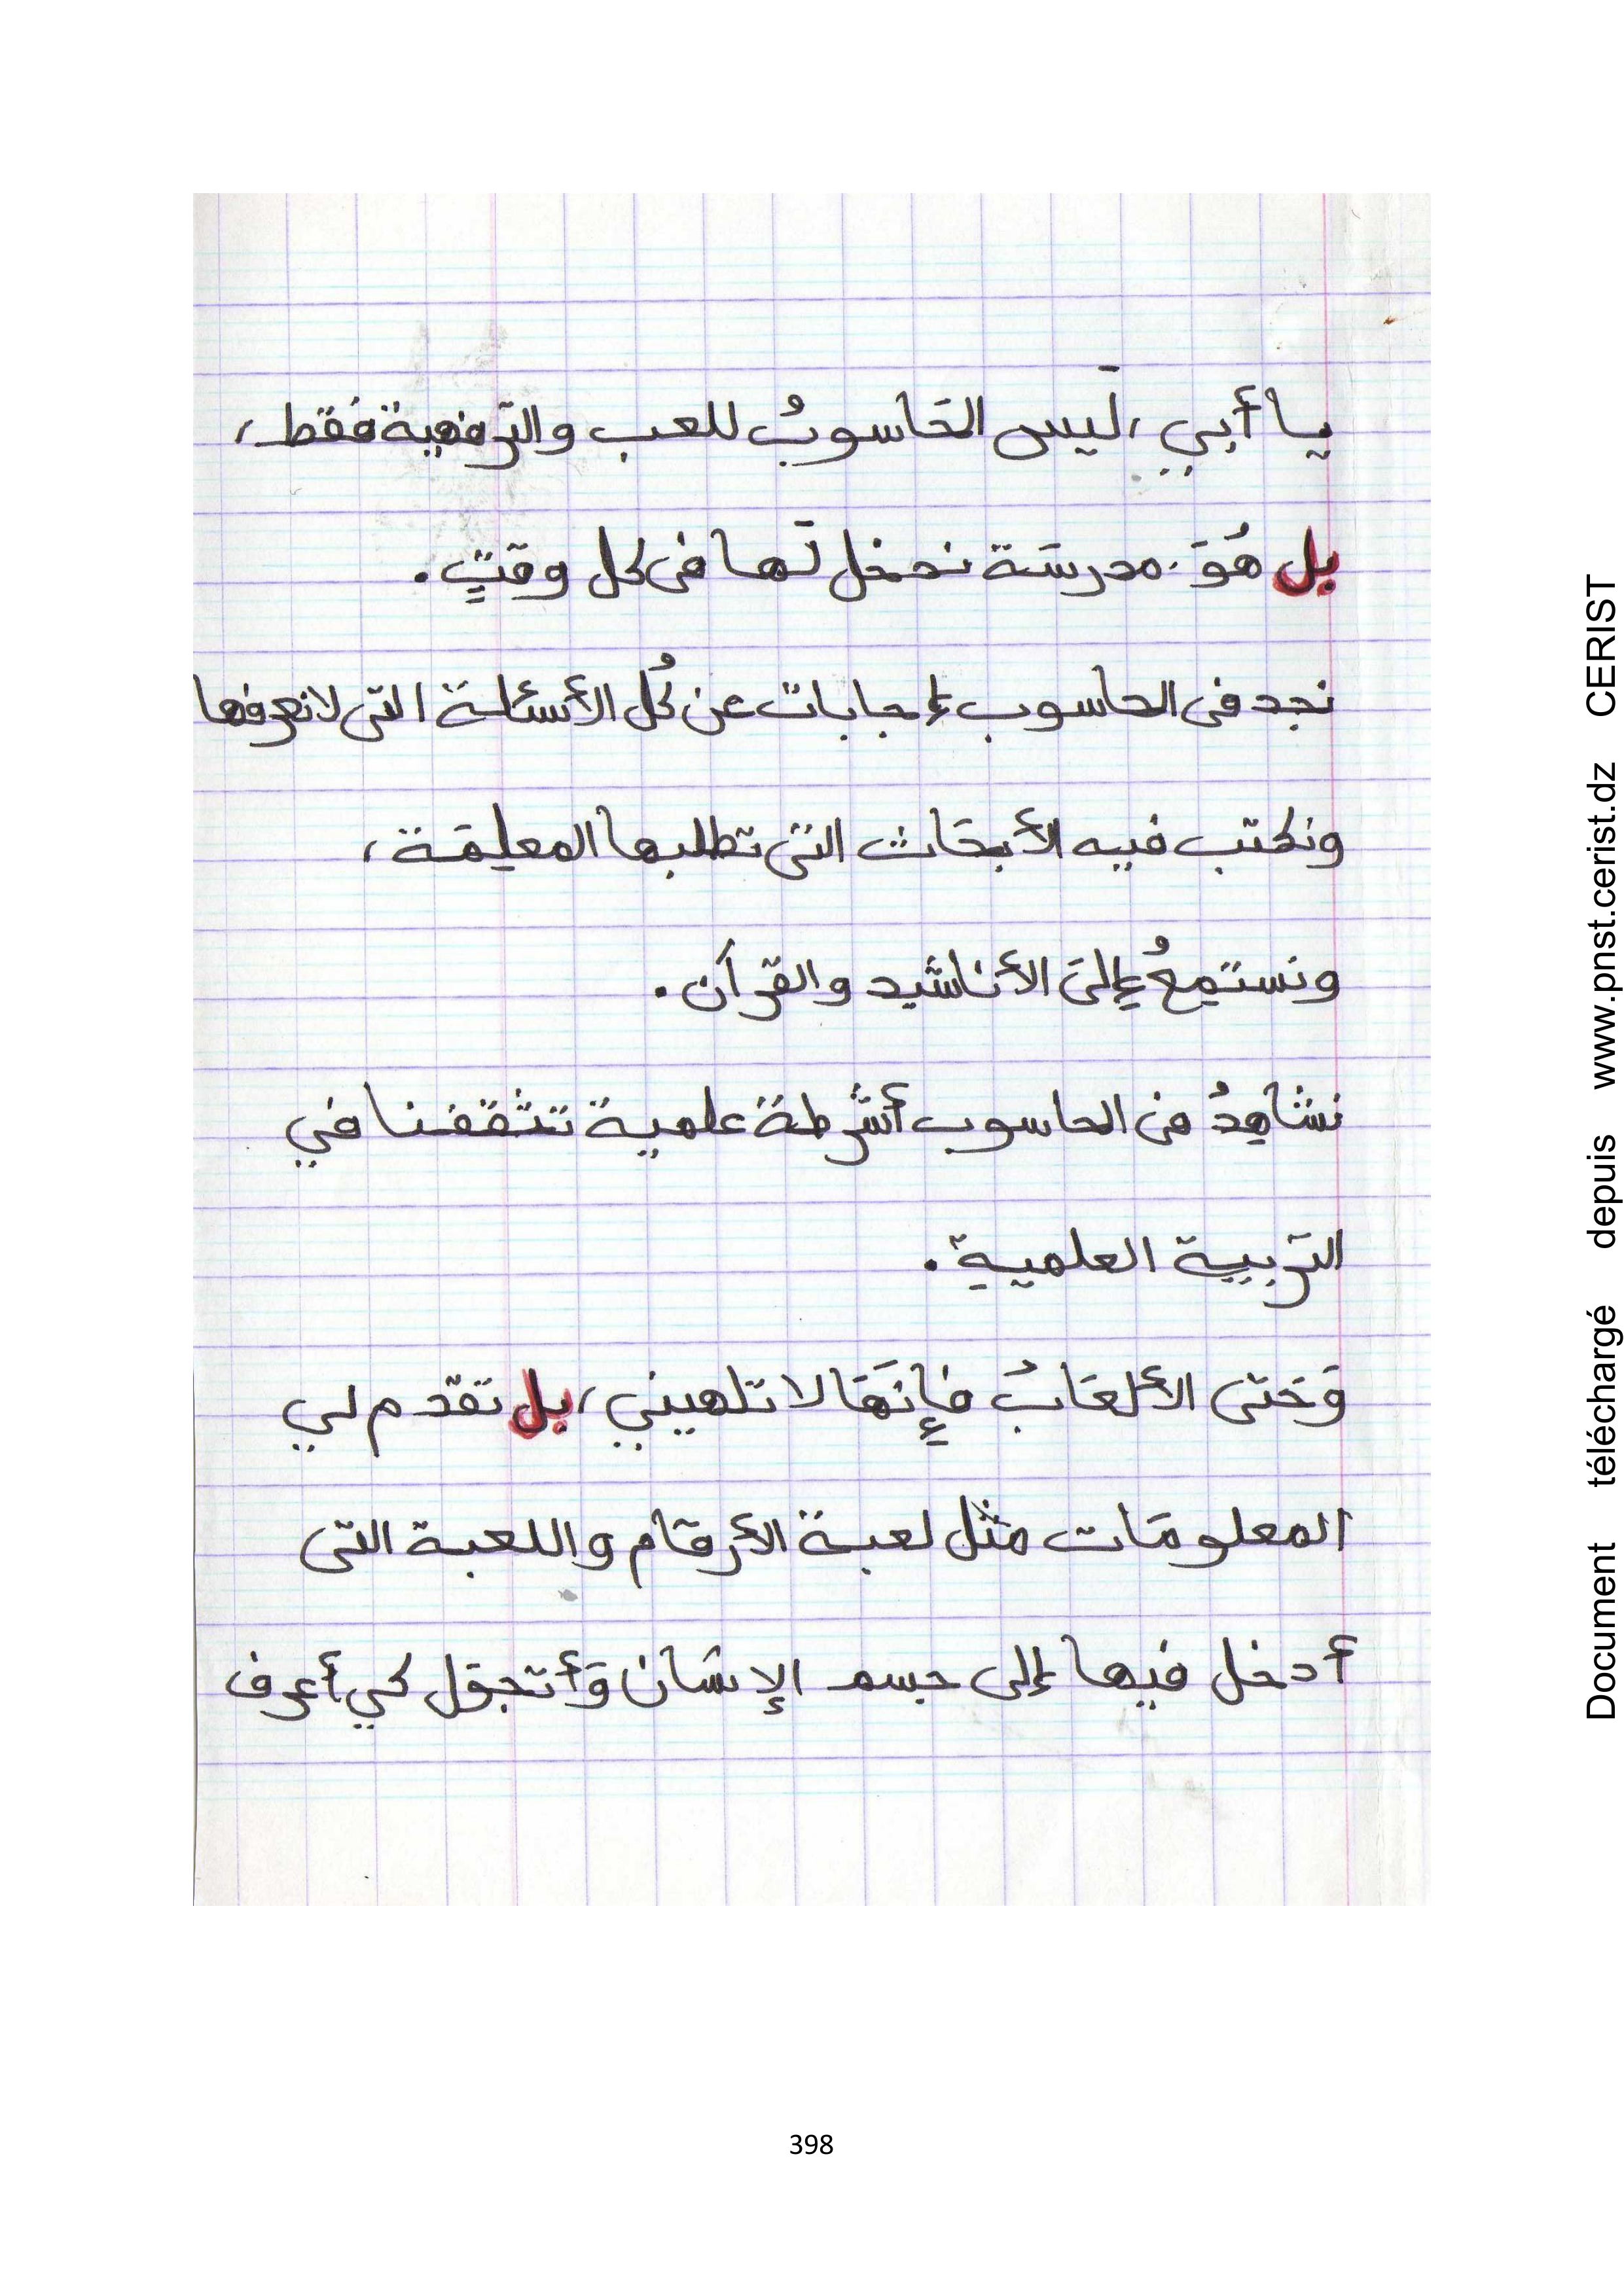 يا أبي، لَيس الحَاسوبُ للعب والتّرفهية فقط،
بل هُوَ مدرسَة ندخل لَها فى كل وقتٍ.
نجد فى الحاسوب إجابات عن كُل الأسئلة التى لا نعرفها
ونكتب فيه الأبحَاث التى تطلبها المعلمَة،
ونستمعُ إلىَ الأناشَيد والقرآن.
نشاهِدُ فى الحاسوب أشرطة علمية تثقفنا في
التّربية العلميةِ.
وَحَتى الألعَابُ فإِنهَا لا تلهيني، بل تقدم لي
المعلومَات مثل لعبة الأرقام واللعبة التى
أدخل فيها إلى جسم الإنسَان وَأتجوّل كي أعرف
398
Document téléchargé depuis www.pnst.cerist.dz CERIST